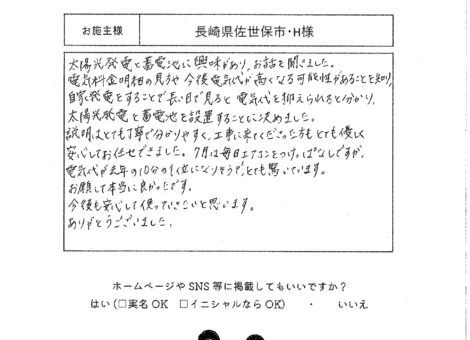 お施主様
長崎県佐世保市・H様
太陽光発電と蓄電池に興味があり、お話を聞きました。
電気料金明細の見方や今後電気代が高くなる可能性があることを知り、
自家発電をすることで長い目で見ると電気代を抑えられると分かり、
太陽光発電と蓄電池を設置することに決めました。
説明はとても丁寧で分かりやすく、工事に来てくださった方もとても優しく
安心してお任せできました。7月は毎日エアコンをつけっぱなしですが、
電気代が去年の10分の1位になりそうで、とても驚いています。
お願して本当に良かったです。
今後も安心して使っていきたいと思います。
ありがとうございました。
ホームページやSNS等に掲載してもいいですか?
はい (□実名OK □イニシャルならOK) ・ いいえ